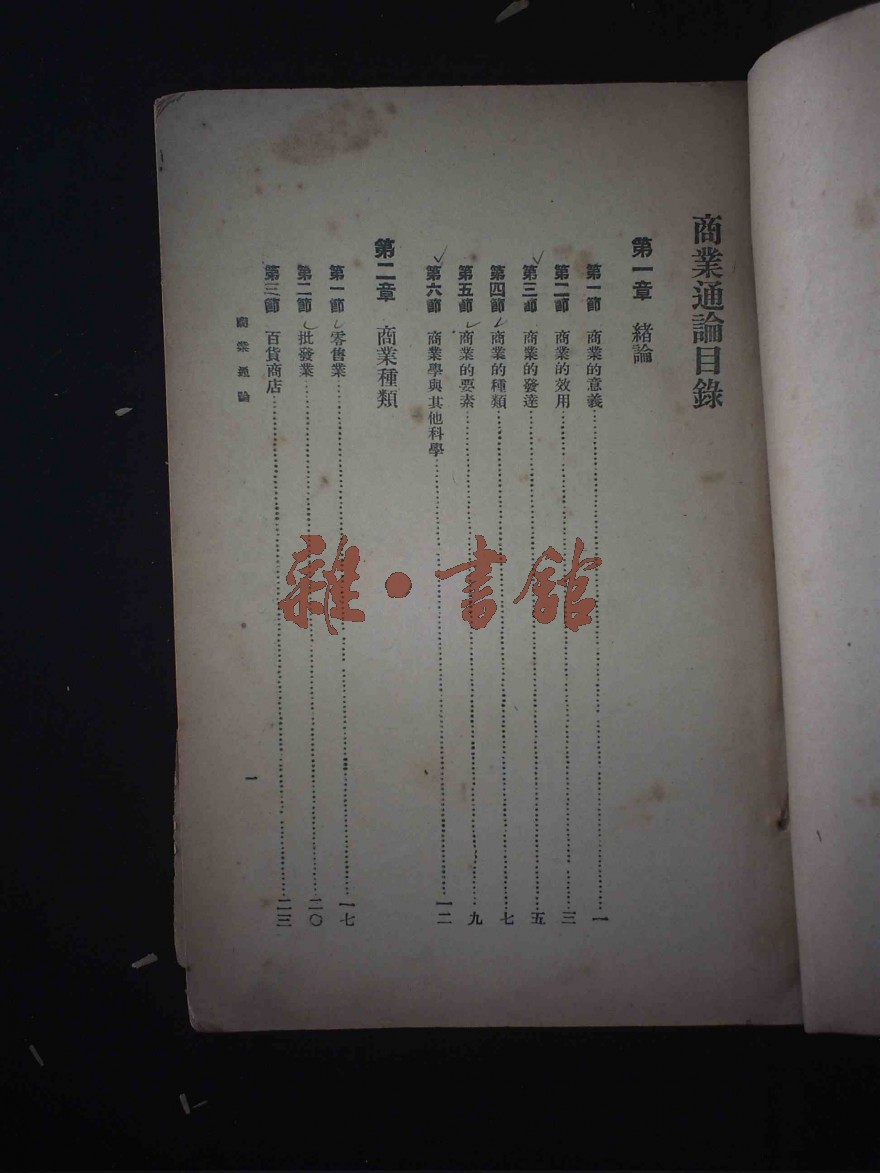 商業通論目錄
第一章 緒論
第一節 商業的意義……一
第二節 商業的效用……三
第三節 商業的發達……五
第四節 商業的種類……七
第五節 商業的要素……九
第六節 商業學與其他科學……一二
第二章 商業種類
第一節 零售業……一七
第二節 批發業……二〇
第三節 百貨商店……二三
商業通論
一
雜·書館